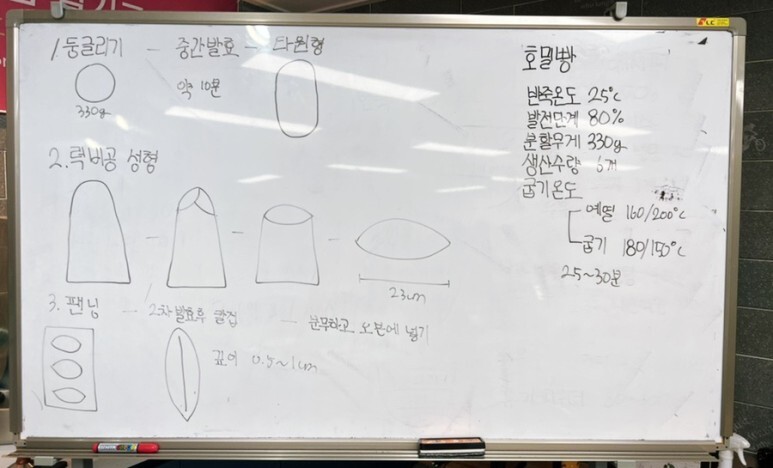 1. 둥글리기 – 중간발효 – 타원형
330g
약 10분
2. 럭비공 성형
23cm
3. 팬닝 – 2차발효후 칼집 – 분무하고 오븐에 넣기
깊이 0.5~1cm
호밀빵
반죽온도 25°C
발전단계 80%
분할무게 330g
생산수량 6개
굽기온도
예열 160/200°C
굽기 180/150°C
25~30분